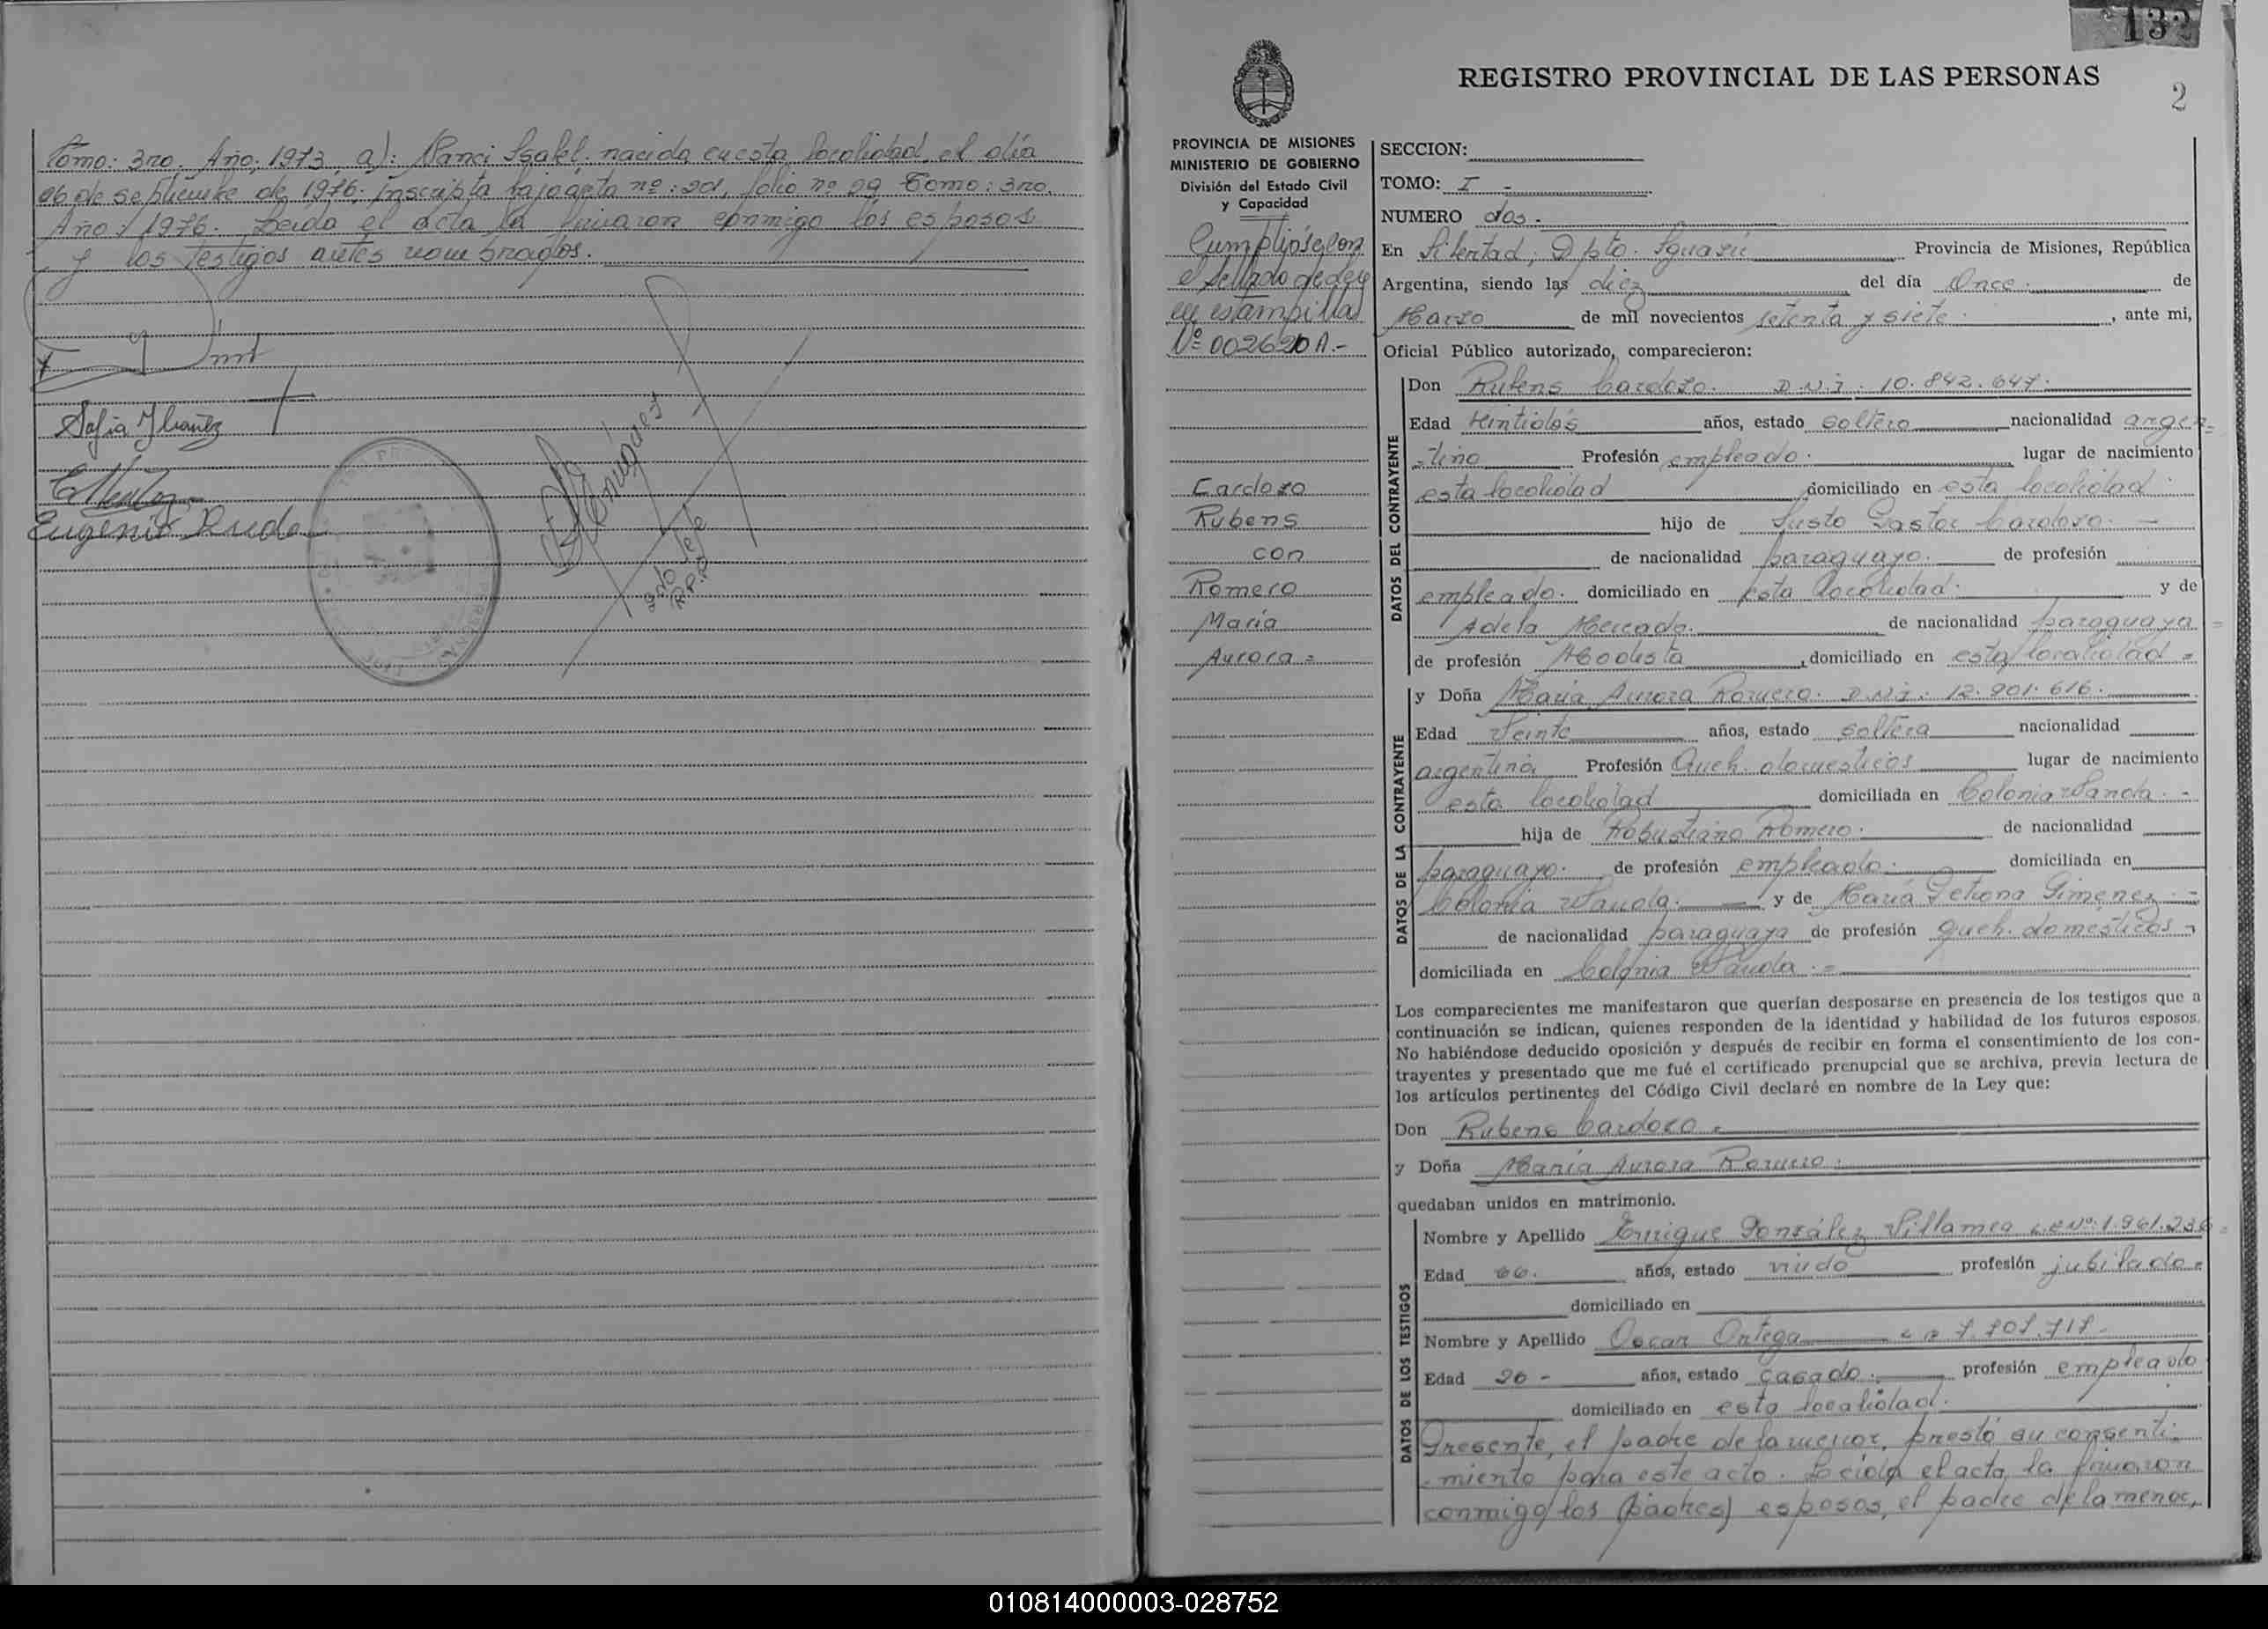 Tomo: 3ro. Año: 1973 a): Nanci Isabel. nacida en esta localidad, el día
06 de septiembre de 1976; inscripta bajo acta nº: 201, folio nº 29 Tomo: 3ro.
Año: 1976. Leida el acta la firmaron conmigo los esposos
y los testigos antes nombrados.
Sofia Ybañez
Eugenio Rueda
132
REGISTRO PROVINCIAL DE LAS PERSONAS
2
PROVINCIA DE MISIONES
MINISTERIO DE GOBIERNO
División del Estado Civil
y Capacidad
Cumplióse con
el sellado de ley
en estampilla
Nº 002620 A.-
Cardozo
Rubens
con
Romero
María
Aurora =
SECCION:
TOMO: I -
NUMERO dos -
En Libertad; Dpto. Iguazú Provincia de Misiones, República
Argentina, siendo las diez del día Once de
Marzo de mil novecientos setenta y siete , ante mi,
Oficial Público autorizado, comparecieron:
DATOS DEL CONTRAYENTE
Don Rubens Cardozo. D.N.I. 10.842.647.
Edad Veintidós años, estado soltero nacionalidad argen-
-tino Profesión empleado. lugar de nacimiento
esta localidad domiciliado en esta localidad
hijo de Justo Pastor Cardozo. -
de nacionalidad paraguayo. de profesión
empleado. domiciliado en esta localidad. y de
Adela Mercado. de nacionalidad paraguaya =
de profesión Modista , domiciliado en esta localidad =
DATOS DE LA CONTRAYENTE
y Doña María Aurora Romero. D.N.I. 12.901.616.
Edad Veinte años, estado soltera nacionalidad
argentina Profesión Queh. domesticos lugar de nacimiento
esta localidad domiciliada en Colonia Wanda. -
hija de Robustiano Romero. de nacionalidad
paraguayo. de profesión empleado. domiciliada en
Colonia Wanda. y de María Petrona Gimenez -
de nacionalidad paraguaya de profesión queh. domésticos -
domiciliada en Colonia Wanda. =
Los comparecientes me manifestaron que querían desposarse en presencia de los testigos que a
continuación se indican, quienes responden de la identidad y habilidad de los futuros esposos.
No habiéndose deducido oposición y después de recibir en forma el consentimiento de los con-
trayentes y presentado que me fué el certificado prenupcial que se archiva, previa lectura de
los artículos pertinentes del Código Civil declaré en nombre de la Ley que:
Don Rubens Cardozo.
y Doña María Aurora Romero.
quedaban unidos en matrimonio.
DATOS DE LOS TESTIGOS
Nombre y Apellido Enrique González Villamea L.E Nº: 1.961.236 =
Edad 66. años, estado viudo profesión jubilado =
domiciliado en
Nombre y Apellido Oscar Ortega
Edad 26 - años, estado casado. profesión empleado
domiciliado en esta localidad.
Presente, el padre de la menor, prestó su consenti-
-miento para este acto. Leida el acta la firmaron
conmigo los (padres) esposos, el padre de la menor,
010814000003-028752